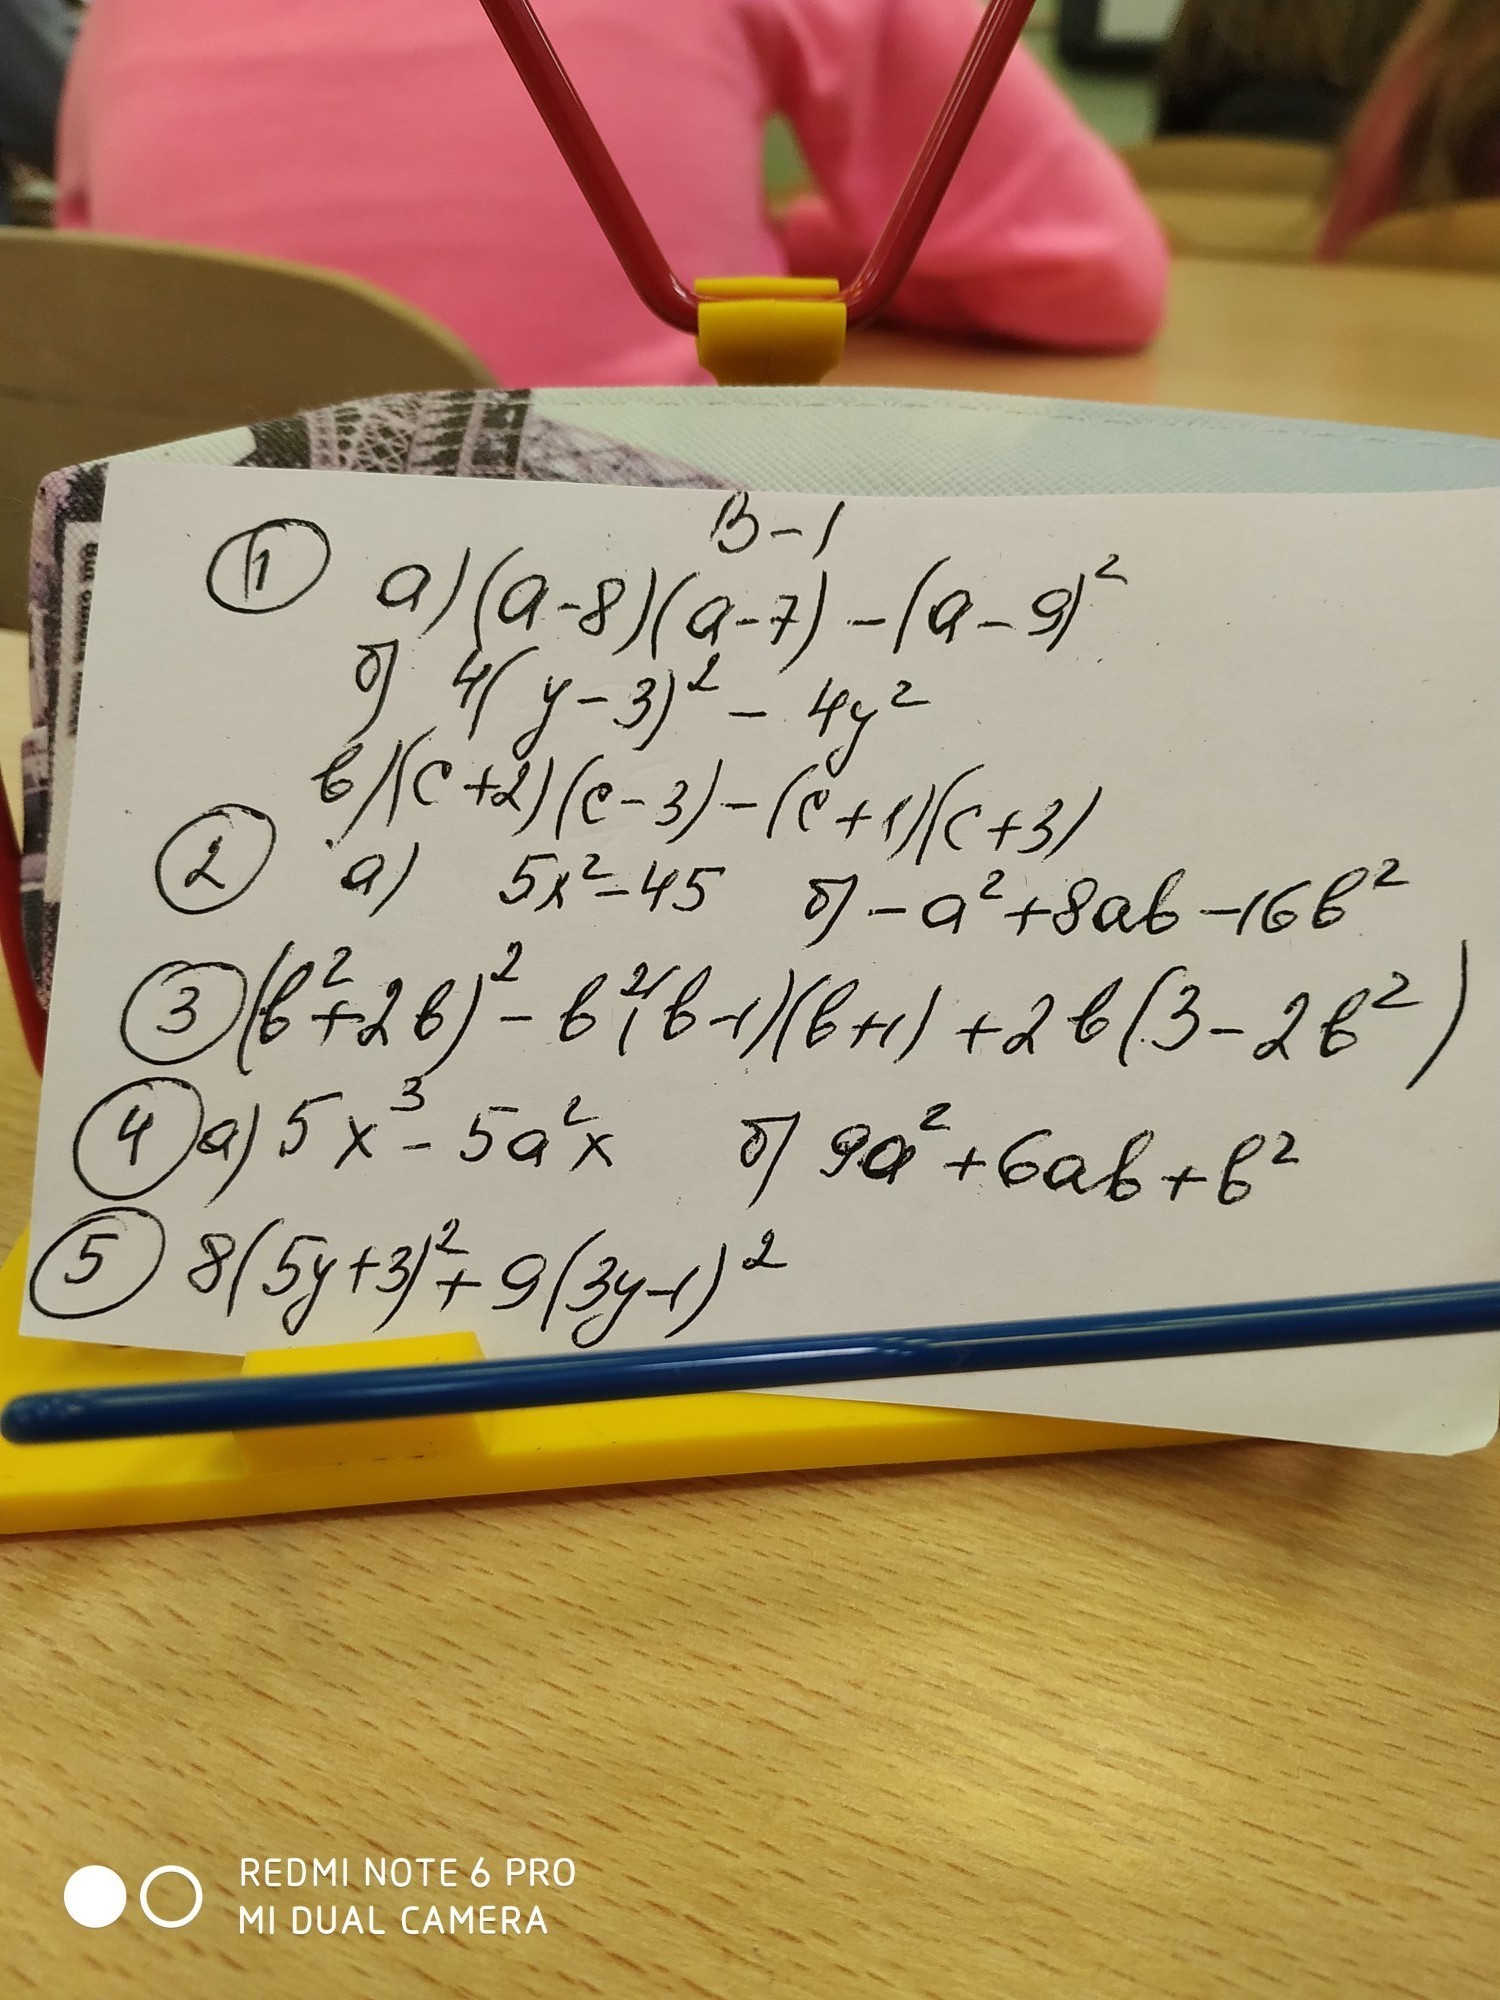 В-1
1 а) (a-8)(a-7) - (a-9)²
б) 4(y-3)² - 4y²
в) (c+2)(c-3) - (c+1)(c+3)
2 а) 5x²-45 б) -a²+8ab-16b²
3 (b²+2b)² - b²(b-1)(b+1) + 2b(3-2b²)
4 а) 5x³ - 5a²x б) 9a²+6ab+b²
5 8(5y+3)² + 9(3y-1)²
REDMI NOTE 6 PRO
MI DUAL CAMERA